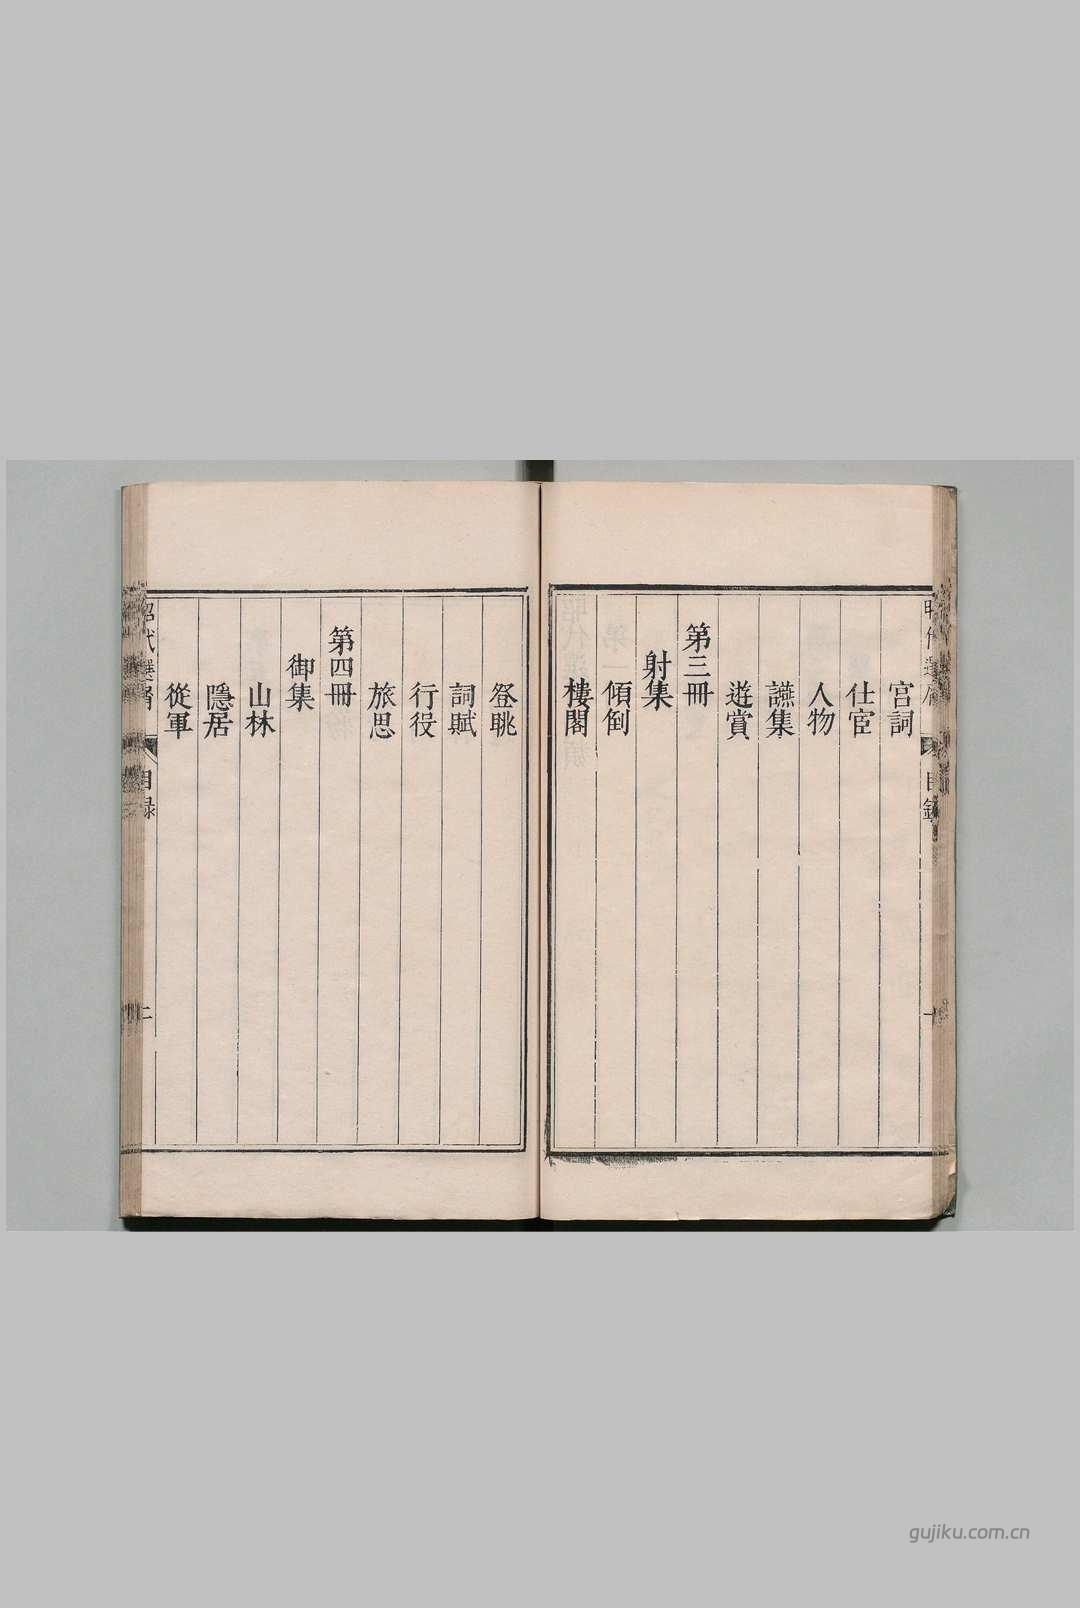 宮詞
仕宦
人物
讌集
遊賞
第三冊
射集
傾倒
樓閣
登眺
詞賦
行役
旅思
第四冊
御集
山林
隱居
從軍
昭代選屑
目録
二
gujiku.com.cn